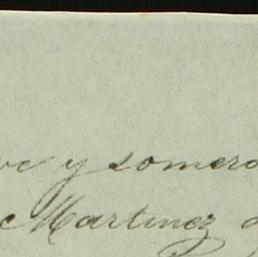 ve y somero
Martinez